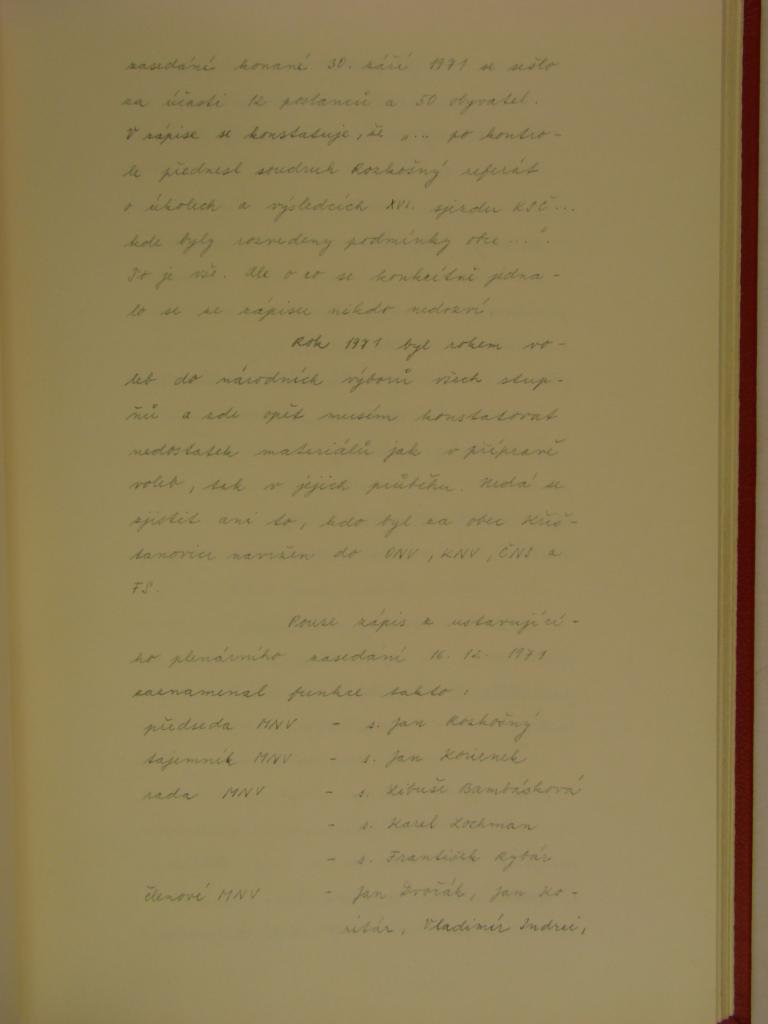 zasedání konané 30. září 1971 se sešlo
za účasti 12 poslanců a 50 obyvatel.
V zápise se konstatuje, že „... po kontro-
le přednesl soudruh Rozkošný referát
o úkolech a výsledcích XVI. sjezdu KSČ...
kde byly rozvedeny podmínky obce...".
To je vše. Ale o co se konkrétně jedna-
lo se ze zápisu nikdo nedozví.
Rok 1971 byl rokem vo-
leb do národních výborů všech stup-
ňů a zde opět musím konstatovat
nedostatek materiálů jak v přípravě
voleb, tak v jejich průběhu. Nedá se
zjistit ani to, kdo byl za obec Křiš-
tanovice navržen do ONV, KNV, ČNS a
FS.
Pouze zápis z ustavující-
ho plenárního zasedání 16. 12. 1971
zaznamenal funkce takto:
předseda MNV - s. Jan Rozkošný
tajemník MNV - s. Jan Korienek
rada MNV - s. Libuše Bambásková
- s. Karel Lochman
- s. František Rybár
členové MNV - Jan Dvořák, Jan Ko-
ritár, Vladimír Indrei,